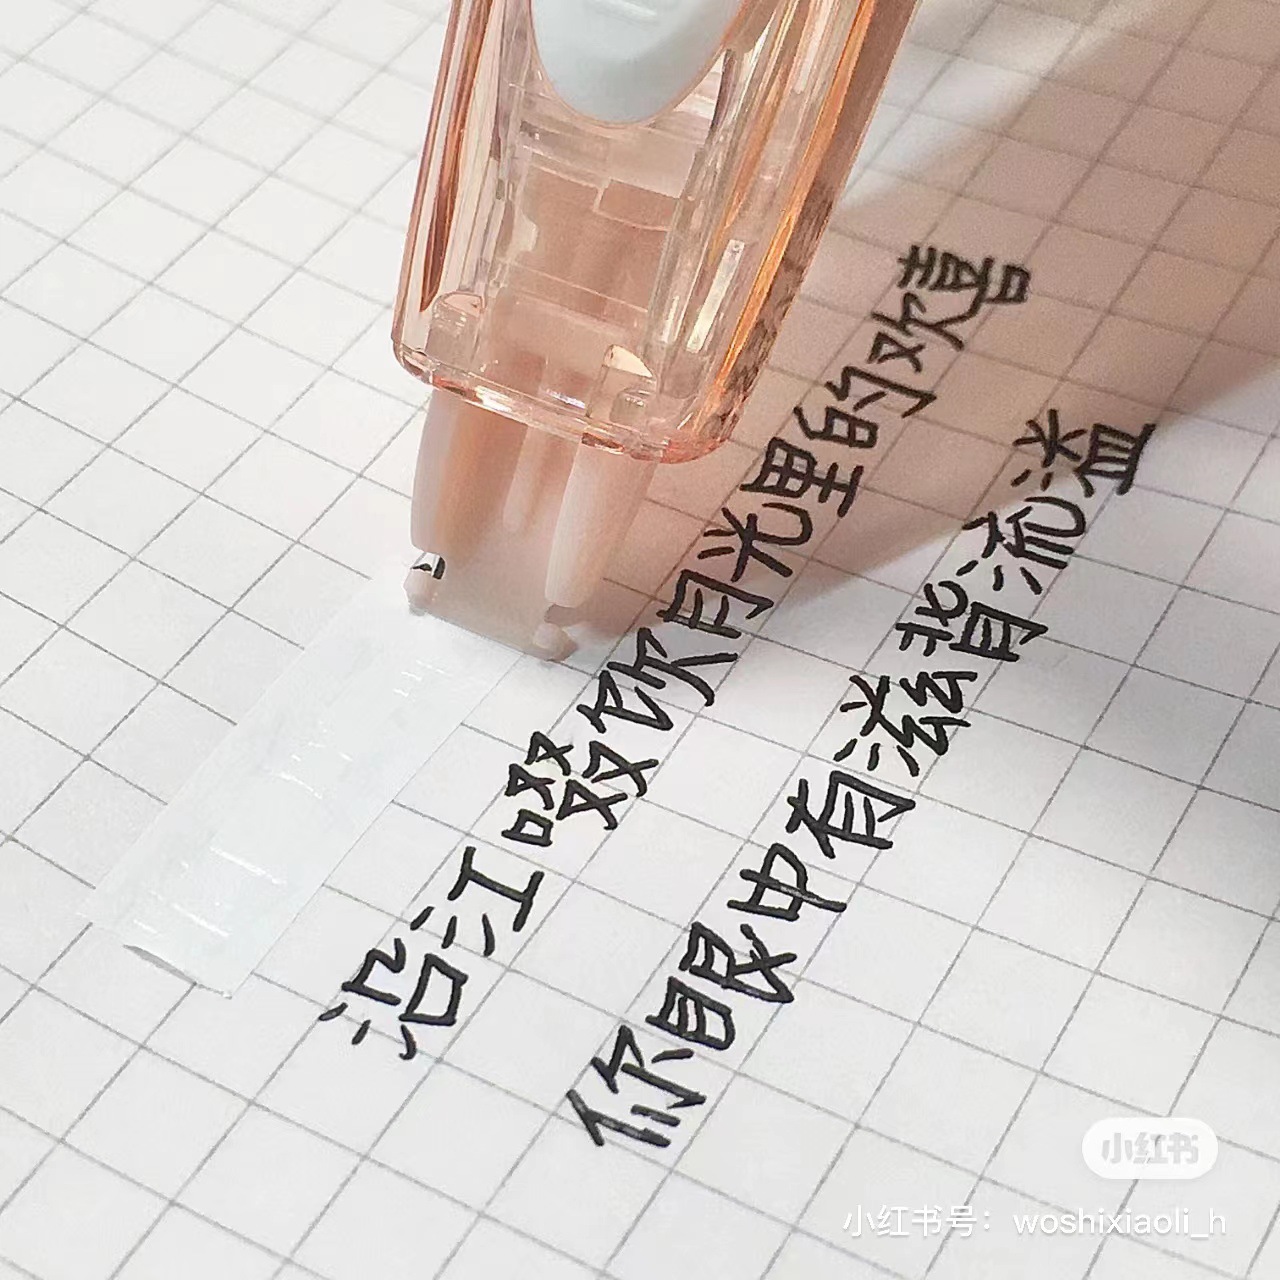 沿江啜饮月光里的欢喜
你眼中有滋背流溢
小红书
小红书号：woshixiaoli_h